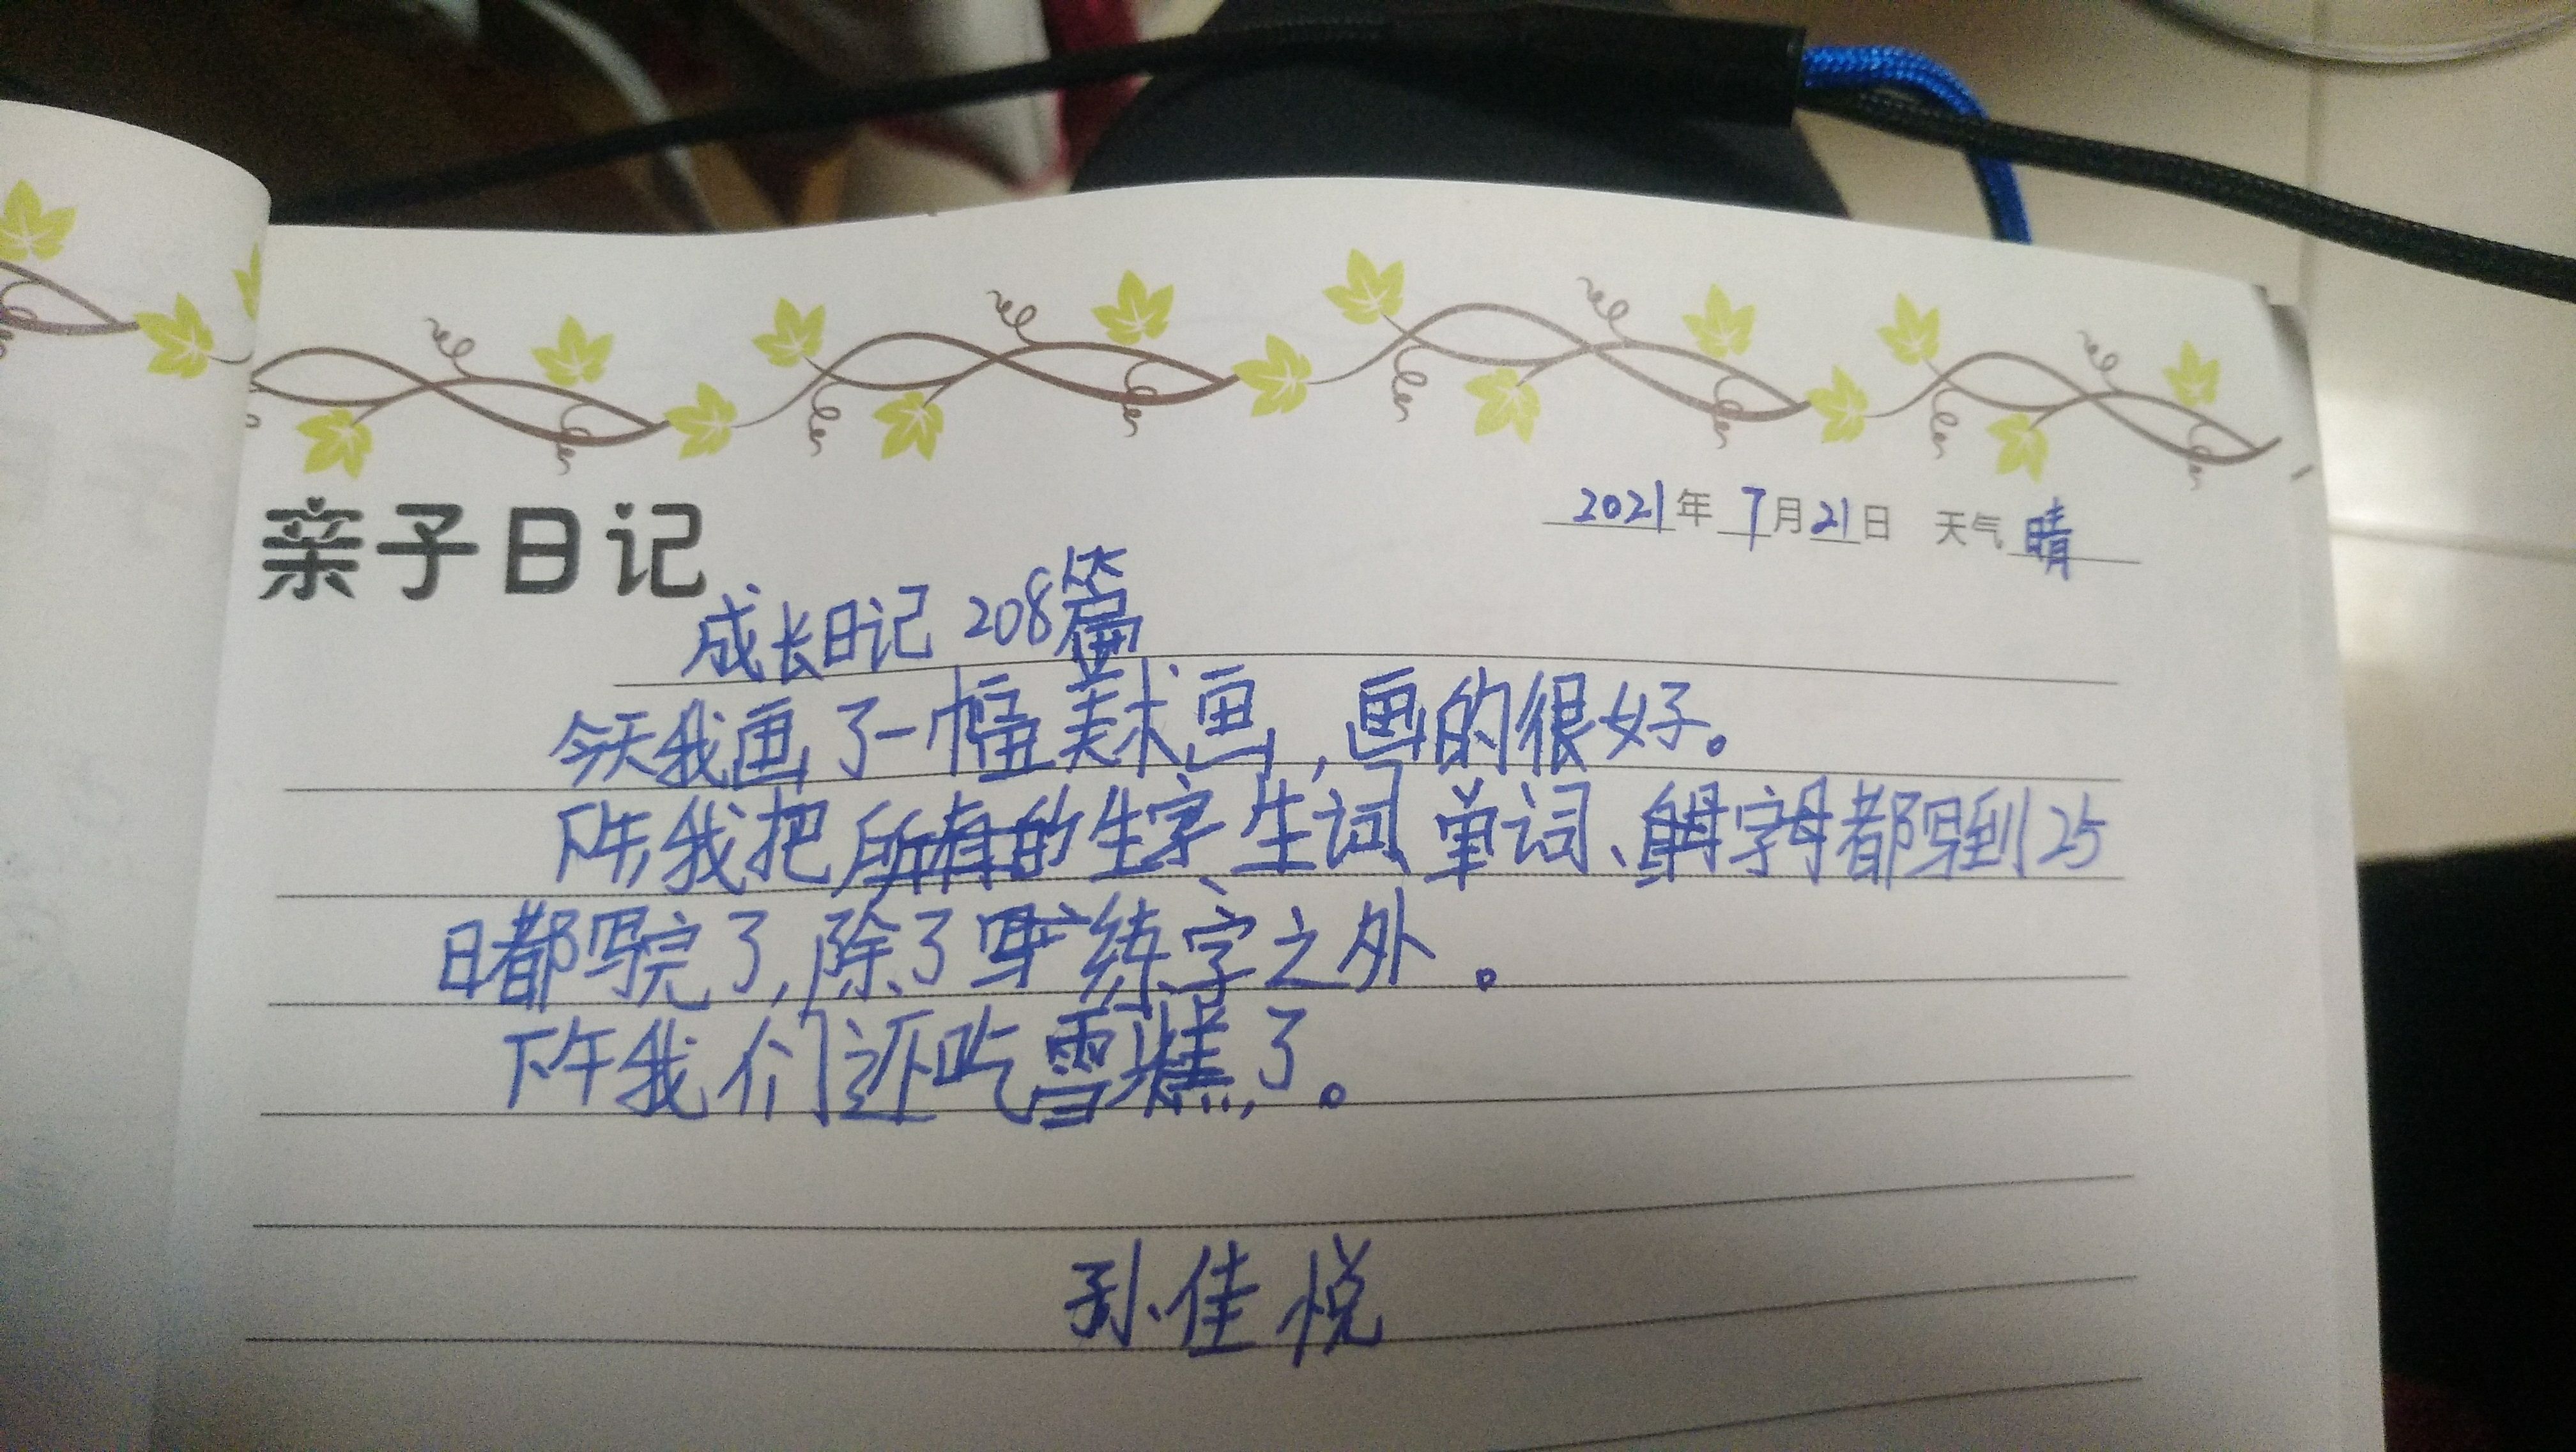 2021年 7月21日 天气 晴
亲子日记
成长日记 208篇
今天我画了一幅美术画,画的很好。
下午我把所有的生字生词、单词、字母都写到25
日都写完了,除了练字之外。
下午我们还吃雪糕了。
孙佳悦